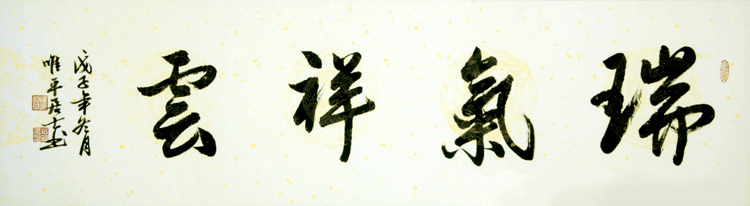 瑞氣祥雲
戊子年冬月
唯平居士書